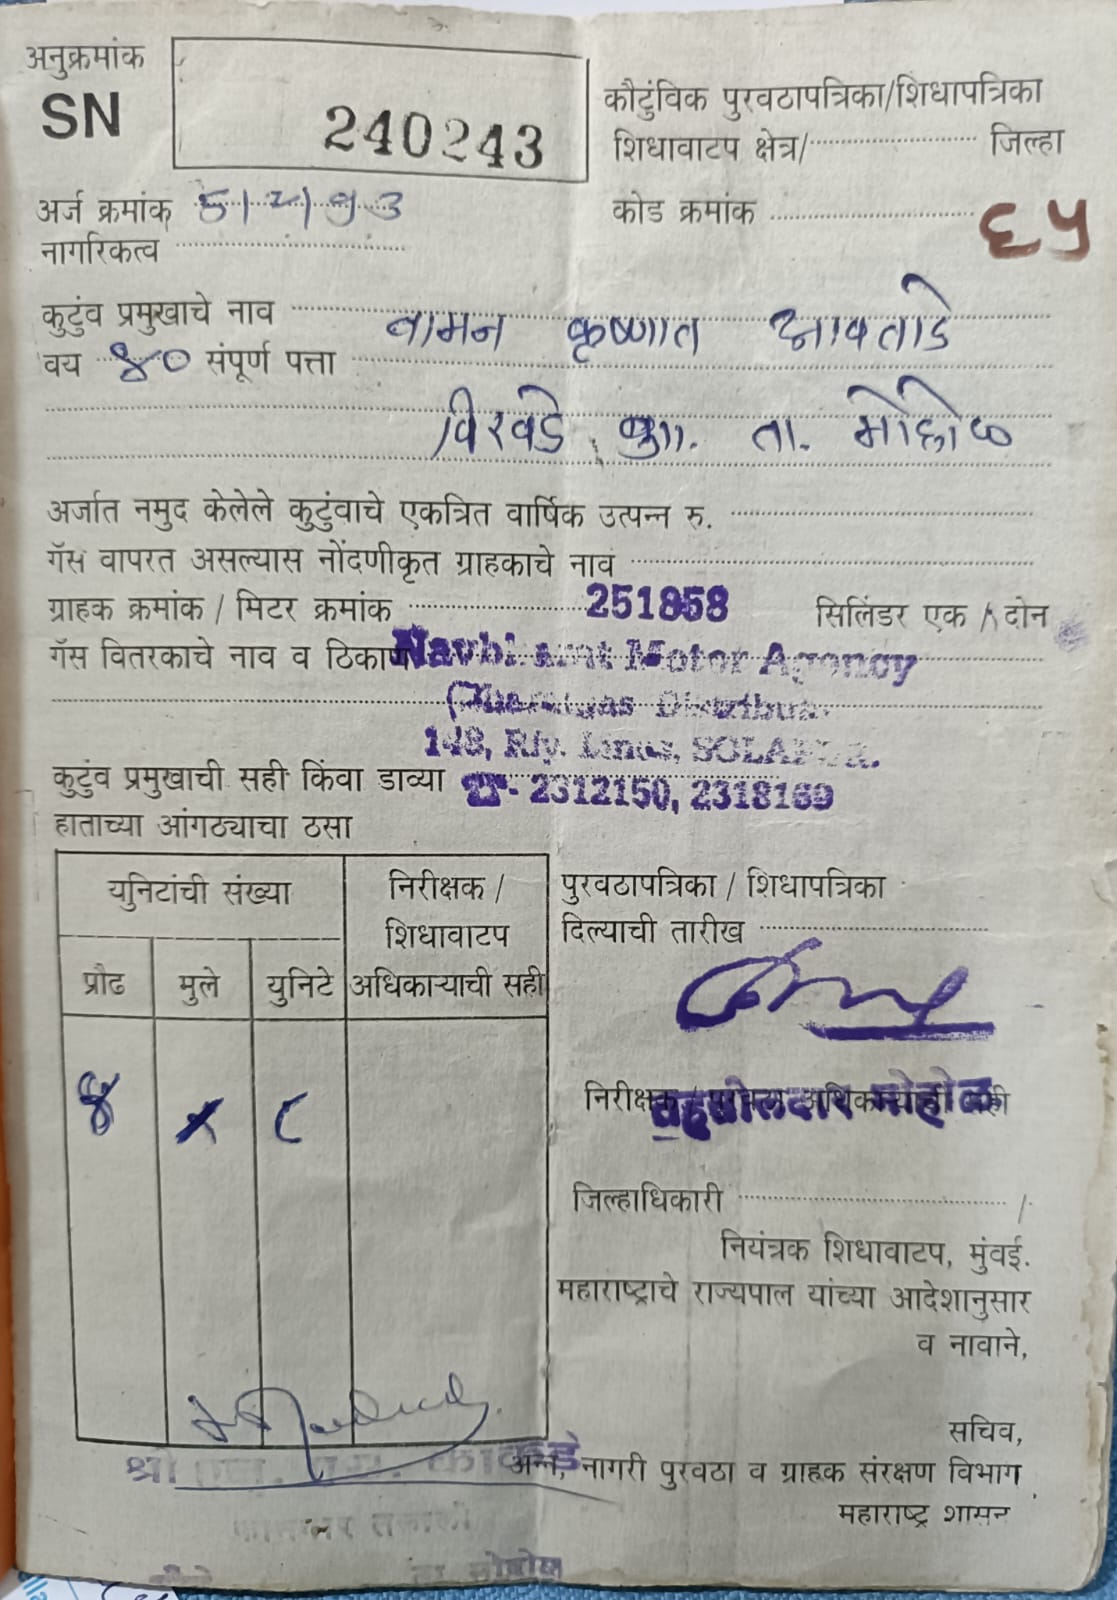 अनुक्रमांक
SN
240243
कौटुंबिक पुरवठापत्रिका/शिधापत्रिका
शिधावाटप क्षेत्र/ जिल्हा
अर्ज क्रमांक 5/2/93
कोड क्रमांक ६५
नागरिकत्व
कुटुंब प्रमुखाचे नाव वामन कृष्णात आवताडे
वय ४० संपूर्ण पत्ता
विरवडे बु॥. ता. मोहोळ
अर्जात नमुद केलेले कुटुंबाचे एकत्रित वार्षिक उत्पन्न रु.
गॅस वापरत असल्यास नोंदणीकृत ग्राहकाचे नाव
ग्राहक क्रमांक / मिटर क्रमांक 251858 सिलिंडर एक / दोन
गॅस वितरकाचे नाव व ठिकाण Navbharat Motor Agency
(Bharatgas Distributor
148, Rly. Lines, SOLAPUR.
कुटुंब प्रमुखाची सही किंवा डाव्या ☎- 2312150, 2318169
हाताच्या आंगठ्याचा ठसा
युनिटांची संख्या
निरीक्षक /
शिधावाटप
अधिकाऱ्याची सही
प्रौढ मुले युनिटे
४ x ८
पुरवठापत्रिका / शिधापत्रिका
दिल्याची तारीख
निरीक्षक / पुरवठा अधिकाऱ्याची सही
तहसीलदार मोहोळ
जिल्हाधिकारी /
नियंत्रक शिधावाटप, मुंबई.
महाराष्ट्राचे राज्यपाल यांच्या आदेशानुसार
व नावाने,
सचिव,
अन्न, नागरी पुरवठा व ग्राहक संरक्षण विभाग
महाराष्ट्र शासन
श्री काकडे
ता मोहोळ